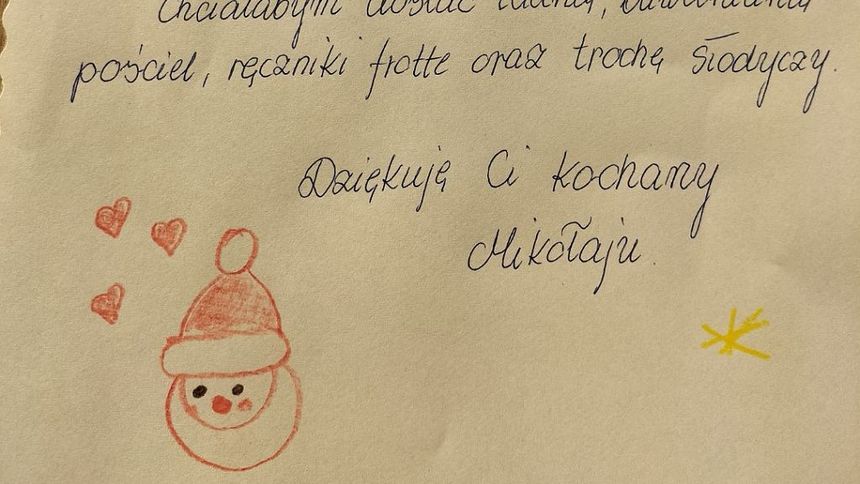 Chciałabym dostać ładną, bawełnianą
pościel, ręczniki frotte oraz trochę słodyczy.
Dziękuję Ci kochany
Mikołaju.